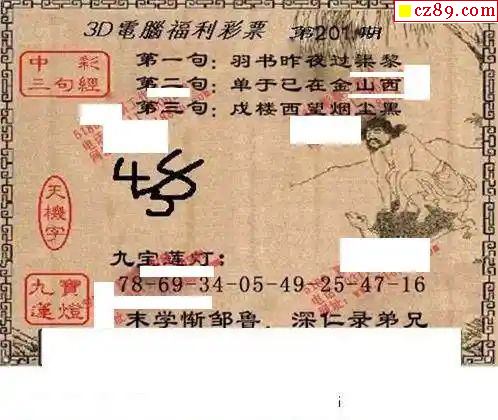 cz89.com
3D電腦福利彩票 第201期
中彩
三句經
第一句：羽书昨夜过渠黎
第二句：单于已在金山西
第三句：戍楼西望烟尘黑
天機字
九宝莲灯：
78-69-34-05-49-25-47-16
九寶
蓮燈
末学惭邹鲁，深仁录弟兄
i